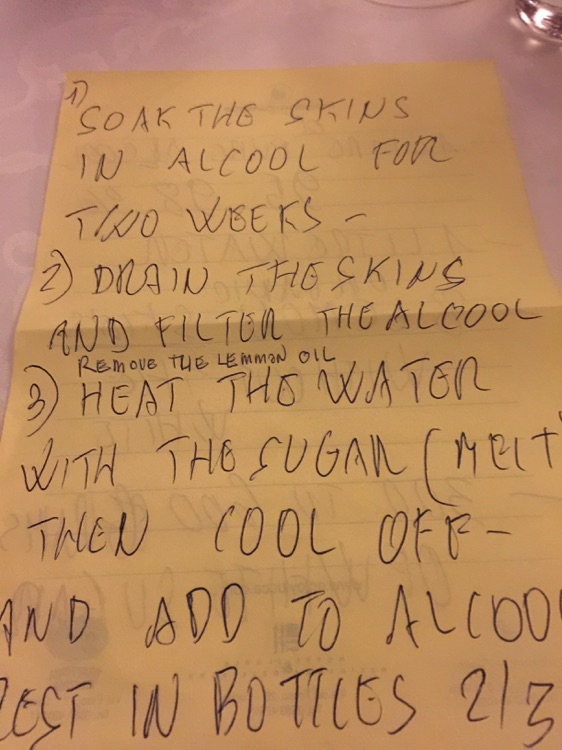 1)
SOAK THE SKINS
IN ALCOOL FOR
TWO WEEKS -
2) DRAIN THE SKINS
AND FILTER THE ALCOOL
REMOVE THE LEMMON OIL
3) HEAT THE WATER
WITH THE SUGAR (MELT
THEN COOL OFF -
AND ADD TO ALCOO
REST IN BOTTLES 2/3